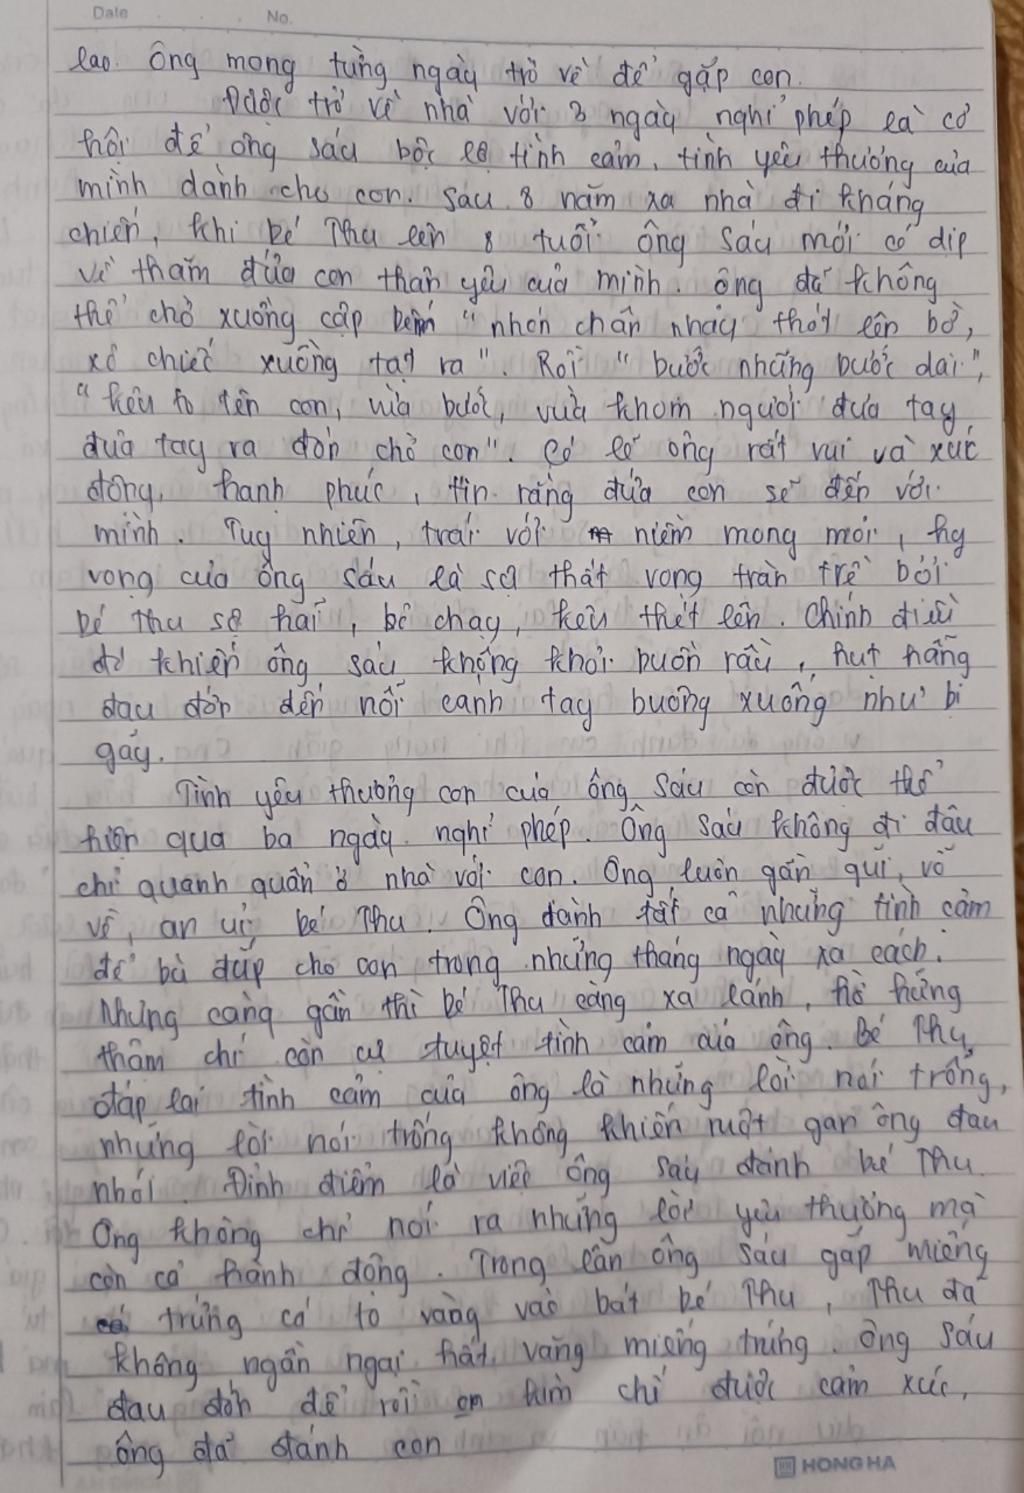 Date No.
lao. Ông mong từng ngày trở về để gặp con.
Được trở về nhà với 3 ngày nghỉ phép là cơ
hội để ông Sáu bộc lộ tình cảm, tình yêu thương của
mình dành cho con. Sau 8 năm xa nhà đi kháng
chiến, khi bé Thu lên 8 tuổi ông Sáu mới có dịp
về thăm đứa con thân yêu của mình. Ông đã không
thể chờ xuồng cập bến "nhón chân nhảy thót lên bờ,
xô chiếc xuồng tạt ra". Rồi "bước những bước dài",
"kêu to tên con, vừa bước, vừa khom người đưa tay
đưa tay ra đón chờ con". Có lẽ ông rất vui và xúc
động, hạnh phúc, tin rằng đứa con sẽ đến với
mình. Tuy nhiên, trái với niềm mong mỏi, hy
vọng của ông Sáu là sự thất vọng tràn trề bởi
bé Thu sợ hãi, bỏ chạy, kêu thét lên. Chính điều
đó khiến ông Sáu không khỏi buồn rầu, hụt hẫng
đau đớn đến nỗi cánh tay buông xuống như bị
gãy.
Tình yêu thương con của ông Sáu còn được thể
hiện qua ba ngày nghỉ phép. Ông Sáu không đi đâu
chỉ quanh quẩn ở nhà với con. Ông luôn gần gũi, vỗ
về, an ủi bé Thu. Ông dành tất cả những tình cảm
để bù đắp cho con trong những tháng ngày xa cách.
Nhưng càng gần thì bé Thu càng xa lánh, hờ hững
thậm chí còn cự tuyệt tình cảm của ông. Bé Thu
đáp lại tình cảm của ông là những lời nói trống,
những lời nói trống không khiến ruột gan ông đau
nhói. Đỉnh điểm là việc ông Sáu đánh bé Thu.
Ông không chỉ nói ra những lời yêu thương mà
còn cả hành động. Trong lần ông Sáu gắp miếng
trứng cá to vàng vào bát bé Thu, Thu đã
không ngần ngại hất văng miếng trứng. Ông Sáu
đau đớn để rồi kìm chế được cảm xúc,
ông đã đánh con
HONG HA